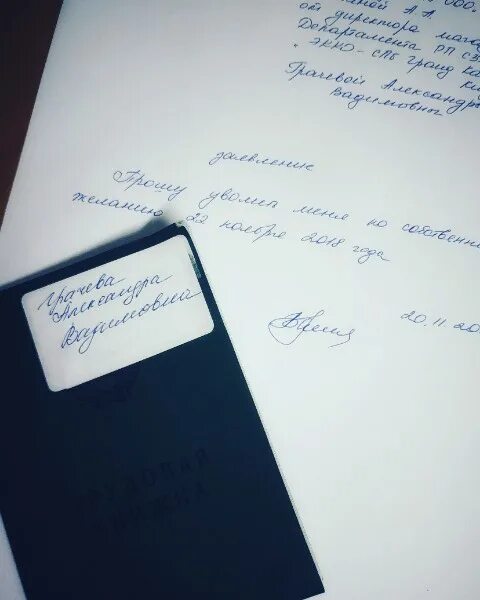 ООО.
А.А.
от директора мага
Департамента РП СЗ
"ЭККО-СПБ Гранд Ка
Грачевой Александр
Вадимовны
заявление
Прошу уволить меня по собственн
желанию 22 ноября 2018 года
20.11.20
Грачева
Александра
Вадимовна
ТРУДОВАЯ
КНИЖКА